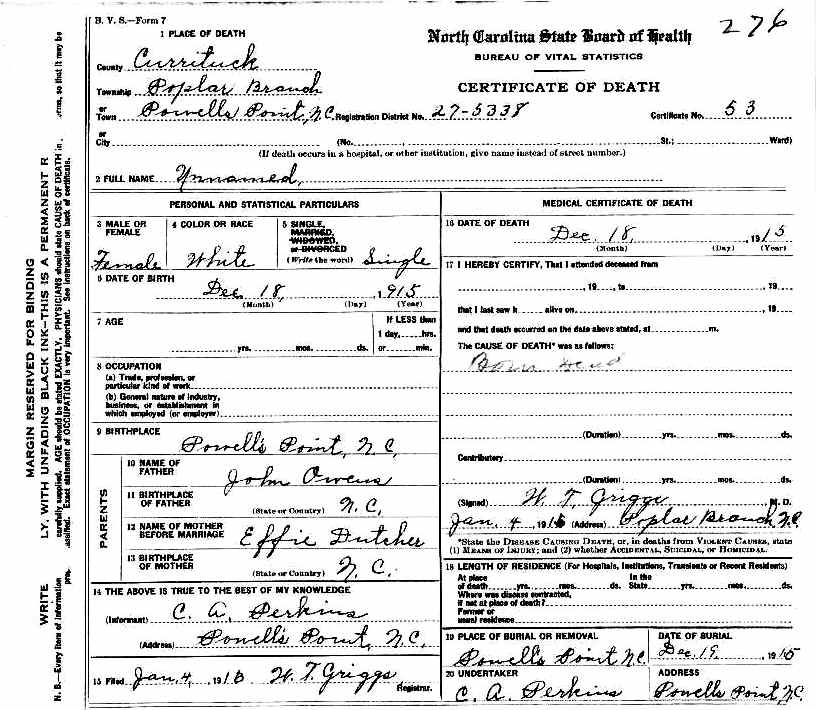 B. V. S.—Form 7
276
1 PLACE OF DEATH
North Carolina State Board of Health
BUREAU OF VITAL STATISTICS
County Currituck
CERTIFICATE OF DEATH
Township Poplar Branch
or Town Powells Point, N.C. Registration District No. 27-5338 Certificate No. 53
or City (No. St.; Ward)
(If death occurs in a hospital, or other institution, give name instead of street number.)
2 FULL NAME Unnamed,
PERSONAL AND STATISTICAL PARTICULARS
3 MALE OR FEMALE
Female
4 COLOR OR RACE
White
5 SINGLE,
MARRIED,
WIDOWED,
or DIVORCED
(Write the word) Single
6 DATE OF BIRTH
Dec. 18, 1915
(Month) (Day) (Year)
7 AGE
If LESS than
yrs. mos. ds.
1 day, hrs.
or min.
8 OCCUPATION
(a) Trade, profession, or
particular kind of work
(b) General nature of industry,
business, or establishment in
which employed (or employer)
9 BIRTHPLACE
Powell's Point, N.C,
PARENTS
10 NAME OF FATHER
John Owens
11 BIRTHPLACE OF FATHER
(State or Country) N.C,
12 NAME OF MOTHER BEFORE MARRIAGE
Effie Dutcher
13 BIRTHPLACE OF MOTHER
(State or Country) N.C.
14 THE ABOVE IS TRUE TO THE BEST OF MY KNOWLEDGE
(Informant) C. A. Perkins
(Address) Powell's Point, N.C.
15 Filed Jan. 4, 1916 W. T. Griggs
Registrar.
MEDICAL CERTIFICATE OF DEATH
16 DATE OF DEATH
Dec. 18, 1915
(Month) (Day) (Year)
17 I HEREBY CERTIFY, That I attended deceased from
, 19 , to , 19
that I last saw h alive on , 19
and that death occurred on the date above stated, at m.
The CAUSE OF DEATH* was as follows:
Born dead
(Duration) yrs. mos. ds.
Contributory
(Duration) yrs. mos. ds.
(Signed) W. T. Griggs M. D.
Jan. 4 1916 (Address) Poplar Branch N.C.
*State the DISEASE CAUSING DEATH, or, in deaths from VIOLENT CAUSES, state
(1) MEANS OF INJURY; and (2) whether ACCIDENTAL, SUICIDAL, or HOMICIDAL.
18 LENGTH OF RESIDENCE (For Hospitals, Institutions, Transients or Recent Residents)
At place In the
of death yrs. mos. ds. State yrs. mos. ds.
Where was disease contracted,
if not at place of death?
Former or
usual residence
19 PLACE OF BURIAL OR REMOVAL
Powells Point N.C.
DATE OF BURIAL
Dec. 19, 1915
20 UNDERTAKER
C. A. Perkins
ADDRESS
Powells Point N.C.
MARGIN RESERVED FOR BINDING
WRITE LY, WITH UNFADING BLACK INK—THIS IS A PERMANENT R
N. B.—Every item of information carefully supplied. AGE should be stated EXACTLY. PHYSICIANS should state CAUSE OF DEATH in terms, so that it may be
classified. Exact statement of OCCUPATION is very important. See instructions on back of certificate.